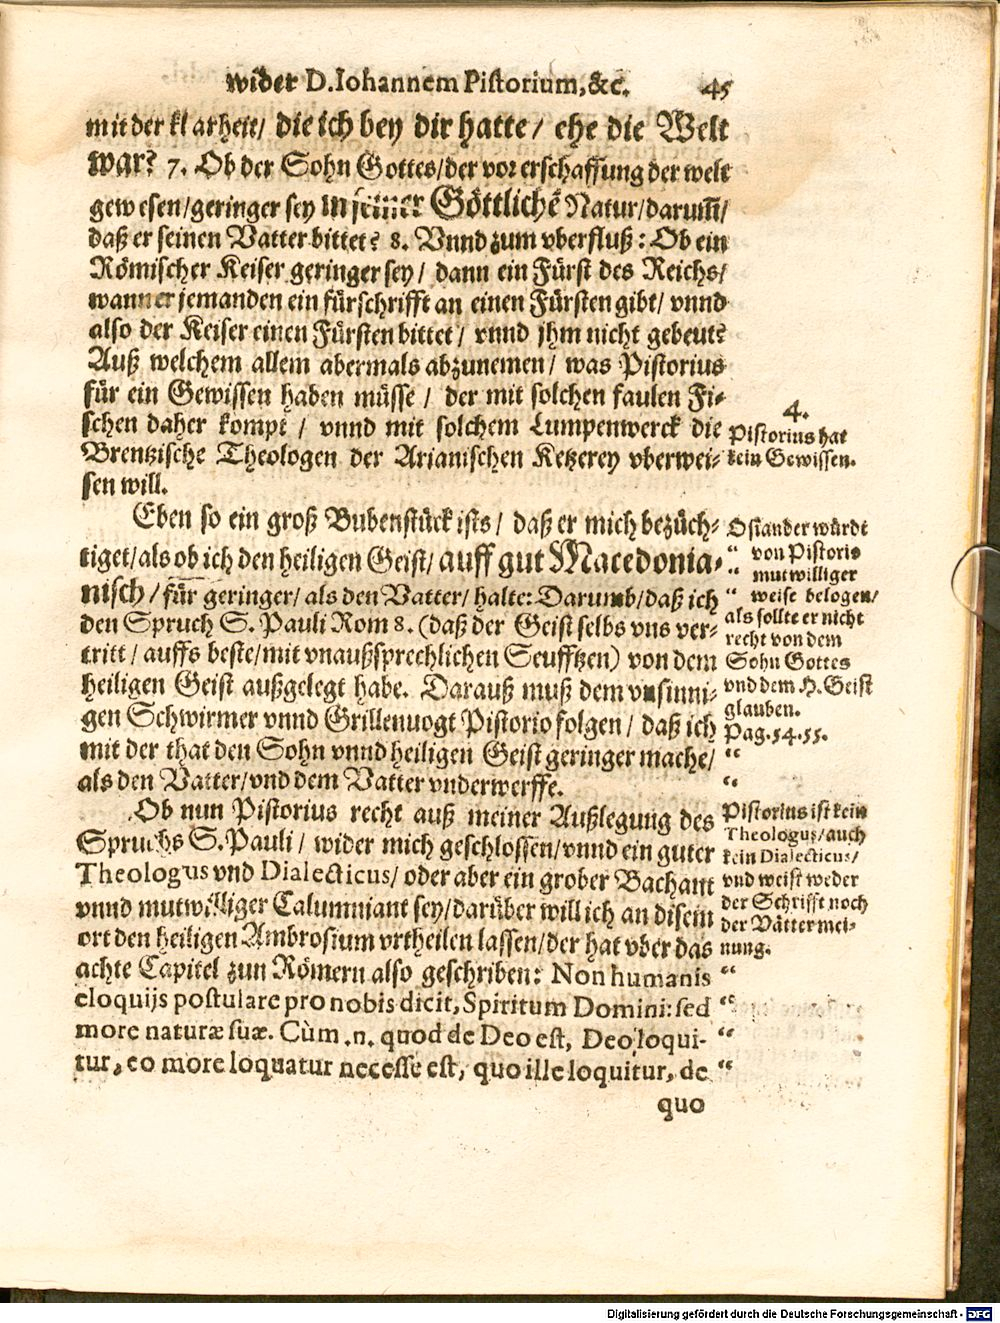 wider D. Iohannem Pistorium, &c. 45
mit der klarheit/ die ich bey dir hatte/ ehe die Welt
war? 7. Ob der Sohn Gottes/ der vor erschaffung der welt
gewesen/ geringer sey in seiner Göttlichē Natur/ darum̄/
daß er seinen Vatter bittet? 8. Vnnd zum vberfluß: Ob ein
Römischer Keiser geringer sey/ dann ein Fürst des Reichs/
wann er jemanden ein fürschrifft an einen Fürsten gibt/ vnnd
also der Keiser einen Fürsten bittet/ vnnd jhm nicht gebeut?
Auß welchem allem abermals abzunemen/ was Pistorius
für ein Gewissen haben müsse/ der mit solchen faulen Fi-
schen daher kompt/ vnnd mit solchem Lumpenwerck die
Brentzische Theologen der Arianischen Ketzerey vberwei-
sen will.
4.
Pistorius hat
kein Gewissen.
Eben so ein groß Bubenstück ists/ daß er mich bezüch-
tiget/ als ob ich den heiligen Geist/ auff gut Macedonia-
nisch/ für geringer/ als den Vatter/ halte: Darumb/ daß ich
den Spruch S. Pauli Rom 8. (daß der Geist selbs vns ver-
tritt/ auffs beste/ mit vnaußsprechlichen Seufftzen) von dem
heiligen Geist außgelegt habe. Darauß muß dem vnsinni-
gen Schwirmer vnnd Grillenuogt Pistorio folgen/ daß ich
mit der that den Sohn vnnd heiligen Geist geringer mache/
als den Vatter/ vnd dem Vatter vnderwerffe.
Osiander würdt
“ von Pistorio
“ mutwilliger
“ weise belogen/
als sollte er nicht
recht von dem
Sohn Gottes
vnd dem H. Geist
glauben.
Pag. 54. 55.
“
“
Ob nun Pistorius recht auß meiner Außlegung des
Spruchs S. Pauli/ wider mich geschlossen/ vnnd ein guter
Theologus vnd Dialecticus/ oder aber ein grober Bachant
vnnd mutwilliger Calumniant sey/ darüber will ich an disem
ort den heiligen Ambrosium vrtheilen lassen/ der hat vber das
achte Capitel zun Römern also geschriben: Non humanis
eloquijs postulare pro nobis dicit, Spiritum Domini: sed
more naturæ suæ. Cùm .n. quod de Deo est, Deo loqui-
tur, eo more loquatur necesse est, quo ille loquitur, de
Pistorius ist kein
Theologus/ auch
kein Dialecticus/
vnd weist weder
der Schrifft noch
der Vätter mei-
nung.
“
“
“
“
quo
Digitalisierung gefördert durch die Deutsche Forschungsgemeinschaft - DFG